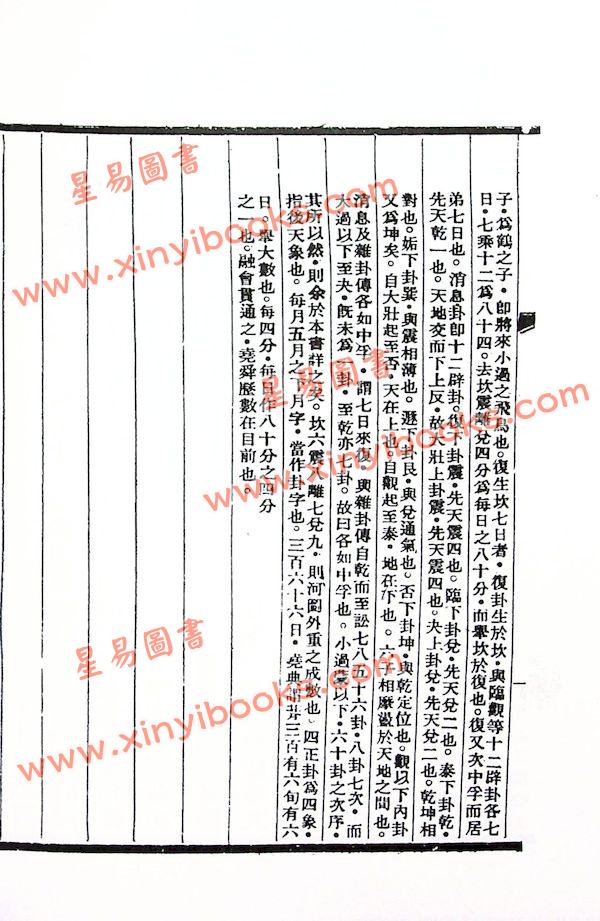 子。為鶴之子。即將來小過之飛鳥也。復生坎七日者。復卦生於坎。與臨觀等十二辟卦各七
日。七乘十二為八十四。去坎震離兌四分為每日之八十分。而舉坎於復也。復又次中孚而居
弟七日也。消息卦即十二辟卦。復下卦震。先天震四也。臨下卦兌。先天兌二也。泰下卦乾。
先天乾一也。天地交而下上反。故大壯上卦震。先天震四也。夬上卦兌。先天兌二也。乾坤相
對也。姤下卦巽。與震相薄也。遯下卦艮。與兌通氣也。否下卦坤。與乾定位也。觀以下內卦
又為坤矣。自大壯起至否。天在上也。自觀起至泰。地在下也。六子相摩盪於天地之間也。
消息及雜卦傳各如中孚。謂七日來復。與雜卦傳自乾而至訟七八五十六卦。八卦七次。而
大過以下至夬。既未為一卦。至乾亦七卦。故曰各如中孚也。小過蒙以下。六十卦之次序。
其所以然。則余於本書詳之矣。坎六震八離七兌九。則河圖外重之成數也。四正卦為四象。
指後天象也。每月五月之下月字。當作卦字也。三百六十六日。堯典朞三百有六旬有六
日。舉大數也。每四分。每日作八十分之四分
之一也。融會貫通之。堯舜歷數在目前也。
星易圖書
www.xinyibooks.com
星易圖書
www.xinyibooks.com
星易圖書
www.xinyibooks.com